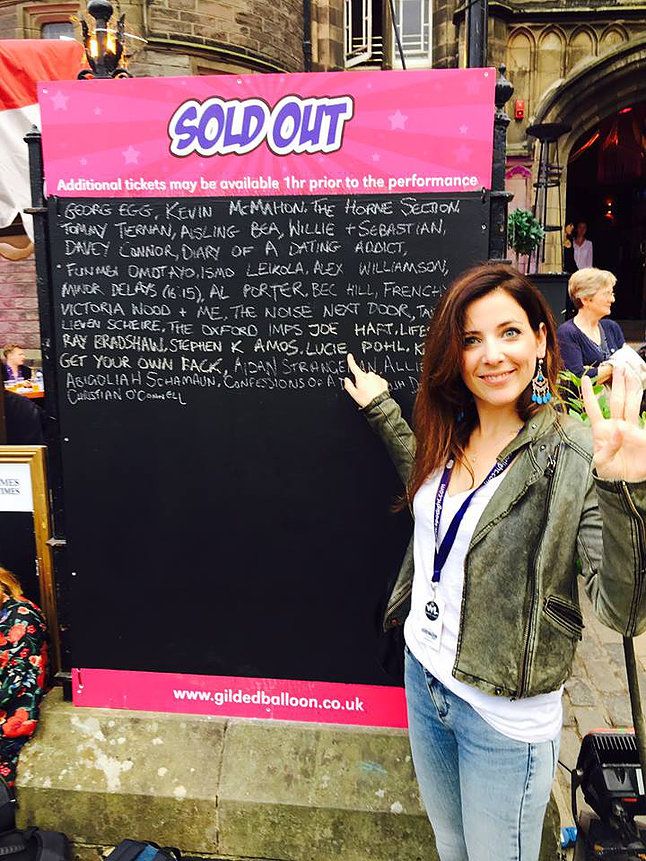 SOLD OUT
Additional tickets may be available 1hr prior to the performance
GEORG EGG, KEVIN McMAHON, THE HORNE SECTION,
TOMMY TIERNAN, AISLING BEA, WILLIE + SEBASTIAN,
DAVEY CONNOR, DIARY OF A DATING ADDICT,
FUNMBI OMOTAYO, ISMO LEIKOLA, ALEX WILLIAMSON,
MINOR DELAYS (16:15), AL PORTER, BEC HILL, FRENCH
VICTORIA WOOD + ME, THE NOISE NEXT DOOR,
LIEVEN SCHEIRE, THE OXFORD IMPS JOE HART,
RAY BRADSHAW, STEPHEN K AMOS, LUCIE POHL,
GET YOUR OWN BACK, AIDAN
ABIGOLIAH SCHAMAUN, CONFESSIONS OF A
CHRISTIAN O'CONNELL
www.gildedballoon.co.uk
MES
TIMES